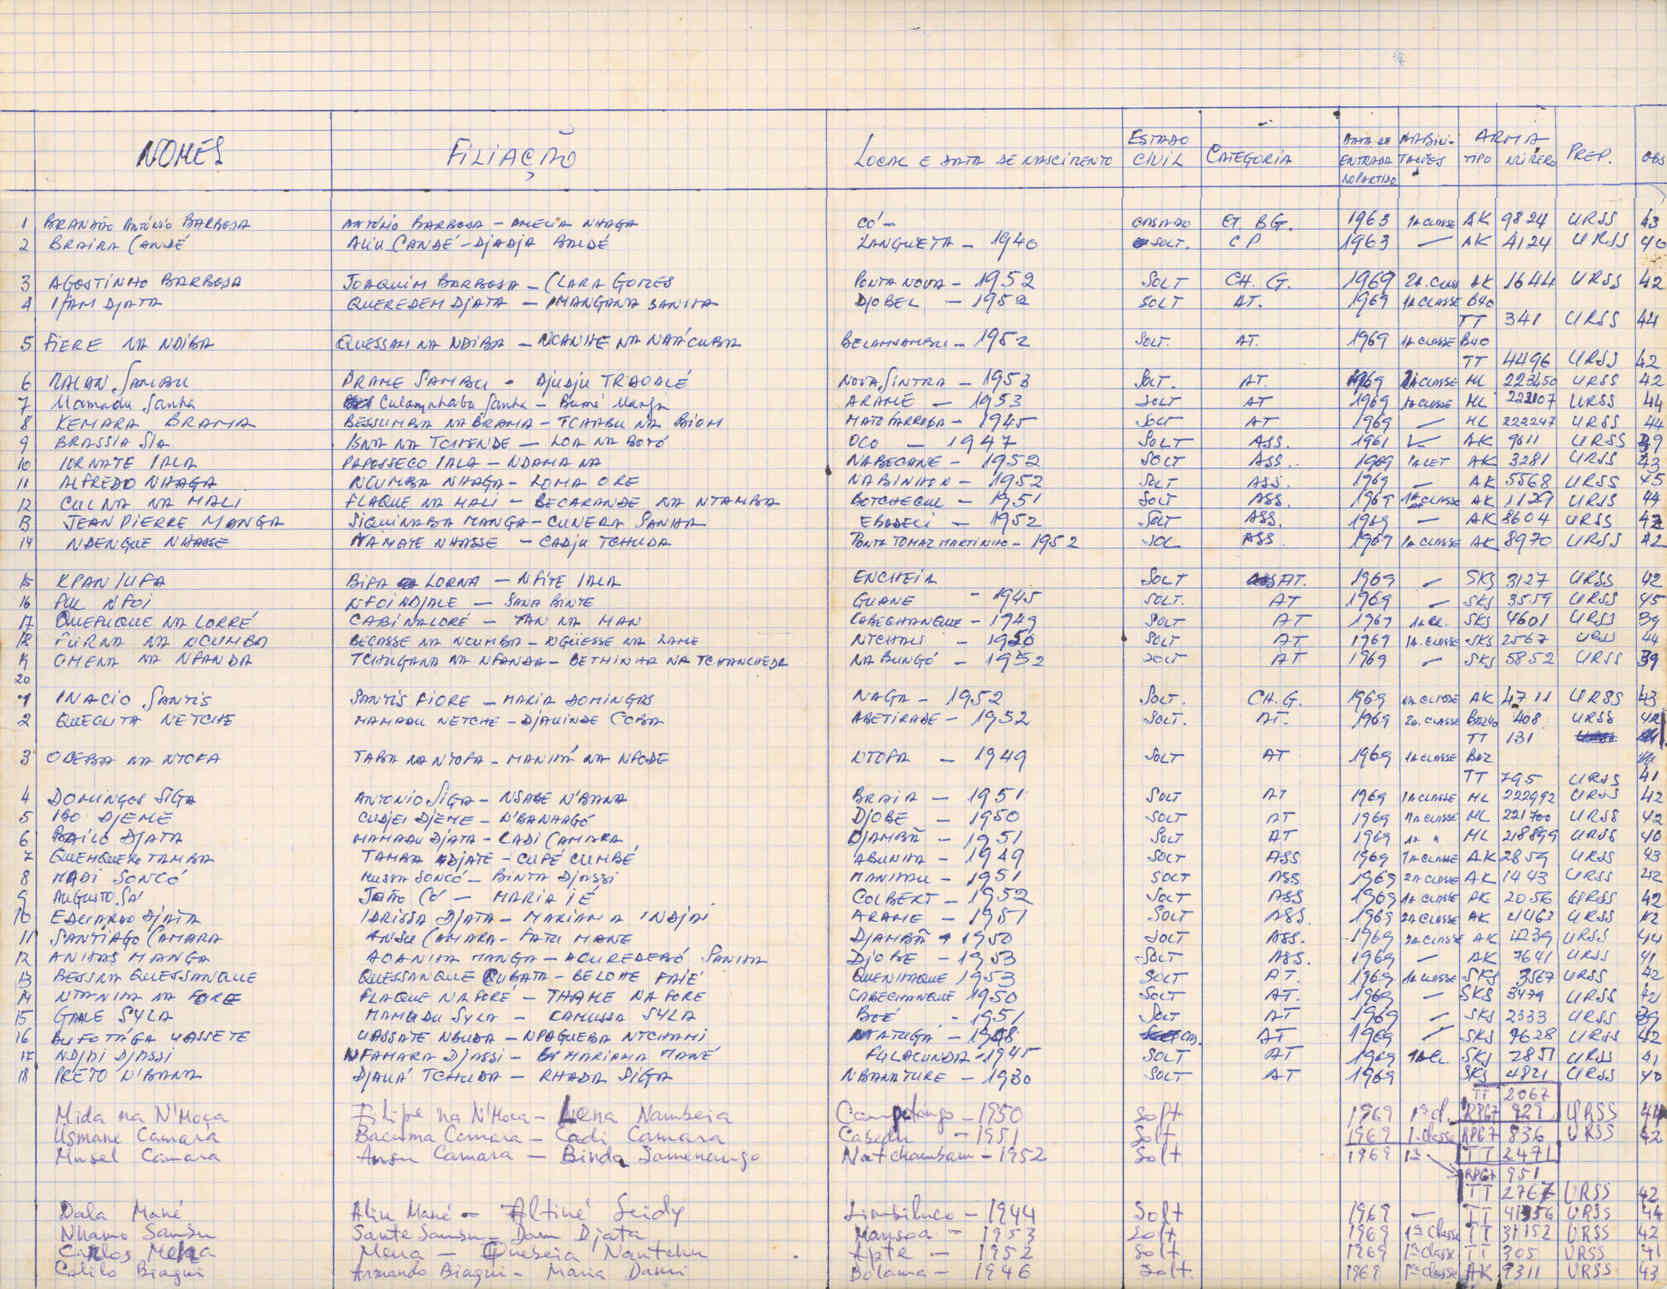 NOMES FILIAÇÃO LOCAL E DATA DE NASCIMENTO ESTADO CIVIL CATEGORIA DATA DE ENTRADA NO PARTIDO HABILITAÇÕES ARMA TIPO NUMERO PREP. OBS
1 António BARBOSA ANTÓNIO BARBOSA – AMELIA NHAGA CÓ – CASADO BG. 1963 1a CLASSE AK 9824 URSS 43
2 BRAIRA CANDÉ ALIU CANDÉ – DJADJA BALDÉ LANGUETA – 1940 SOLT. CP 1963 — AK 4124 URSS 40
3 AGOSTINHO BARBOSA JOAQUIM BARBOSA – CLARA GOMES PONTA NOVA – 1952 SOLT CH. G. 1969 2a. CLASS AK 1644 URSS 42
4 IFAM DJATA QUEREDEM DJATA – MANGANA SANHA DJOBEL – 1952 SOLT AT. 1969 1a CLASSE B40
TT 341 URSS 44
5 FIERE NA NDIBA QUESSAM NA NDIBA – NCANHE NA NATCUBA 1952 SOLT. AT. 1969 1a CLASSE B40
TT 4496 URSS 42
6 MALAN SAMBU DRAME SAMBU – DJUDJU TRAOALÉ NOVA SINTRA – 1953 SOLT. AT. 1969 CLASSE ML 223450 URSS 42
7 Mamadu Sanha Sanha – ARAME – 1953 SOLT AT 1969 1a CLASSE ML URSS 44
8 KEMARA BRAMA BESSUMBA NA BRAMA – TCHABU NA BIOM MATO FARROBA – 1945 SOLT AT 1969 — ML 222247 URSS 44
9 BRASSIA SIA ISNA NA TCHENDE – LOA NA BOTÓ OCO — 1947 SOLT ASS. 1961 AK 9611 URSS 39
10 IORNATE IALA PAPOSSECO IALA – NDAMA NA NABECANE – 1952 SOLT ASS. 1969 AK 3281 URSS 43
11 ALFREDO NHAGA NCUMBA NHAGA – LOMA ORE 1952 SOLT ASS. 1969 — AK 5568 URSS 45
12 CUL NA NA MALI FLAQUE NA MALI – BECARANDE NA NTAMBA BOTCHECUL – 1951 SOLT ASS. 1969 1a CLASSE AK 1129 URSS 44
13 JEAN PIERRE MANGA SIQUINABA MANGA – CUNERA SANHA – 1952 SOLT ASS. 1969 — AK 8604 URSS 42
14 NDENQUE NHASSE NAMATE NHASSE – CADJU TCHUDA PONTA TOMAZ MARTINHO – 1952 SOL ASS. 1969 1a CLASSE AK 8970 URSS 42
15 KPAN IUFA BIFA LORNA – NFITE IALA ENCHEIA SOLT AT. 1969 — SKS 3127 URSS 42
16 NFOI NFOI NDJALE — SANA BINTE GUANE – 1945 SOLT. AT 1969 — SKS 3559 URSS 45
17 NA LORRÉ CABINALORÉ – TAN NA MAN CABEGHANQUE – 1949 SOLT AT 1969 SKS 4601 URSS 39
18 NA NCUMBA BECASSE NA NCUMBA – NGUESSE NA LAME NTCHALI – 1950 SOLT AT 1969 1a. CLASSE SKS 2567 URSS 44
19 OMENA NA NFANDA TCHUGANA NA NFANDA – BETHINHA NA TCHANCHEDA NA BUNGÓ – 1952 SOLT AT 1969 — SKS 5852 URSS 39
20
1 INACIO SANTIS SANTIS FIORE – MARIA DOMINGAS NAGA – 1952 SOLT. CH.G. 1969 CLASSE AK 4711 URSS 43
2 QUEGUITA NETCHE MAMADU NETCHE – DJAUINDE COBA ABETIRADE – 1952 SOLT. AT. 1969 2a. CLASSE 408 URSS
TT 131
3 ODEBA NA NTOFA TABA NA NTOFA – MANHÁ NA NFODE NTOFA – 1949 SOLT AT 1969 1a CLASSE
TT 795 URSS 41
4 DOMINGOS SIGA ANTONIO SIGA – NSADE N'BANA BRAIA – 1951 SOLT AT 1969 1a CLASSE ML 222992 URSS 42
5 IBO DJEME CUDJEI DJEME – N'BANHAGÓ DJOBE – 1950 SOLT AT 1969 1a CLASSE ML 221700 URSS 42
6 DJATA MAMADU DJATA – CADI CAMARA DJAMBÃ – 1951 SOLT AT 1969 1a " ML 218899 URSS 40
7 TAMBA TAMBA ADJATE – CUPÉ CUMBÉ ABUNHA – 1949 SOLT ASS 1969 1a CLASSE AK 2859 URSS 43
8 MADI SONCÓ MUSSA SONCÓ – BINTA DJASSI MANHAU – 1951 SOLT ASS 1969 2a CLASSE AK 1443 URSS 42
9 AUGUSTO SÁ JOÃO CÓ – MARIA IÉ COLBERT – 1952 SOLT ASS 1969 1a CLASSE AK 2056 URSS 42
10 EDUARDO DJATA IDRISSA DJATA – MARIAMA INDJAI ARAME – 1951 SOLT ASS. 1969 2a CLASSE AK 4462 URSS 42
11 SANTIAGO CAMARA ANSU CAMARA – FATU MANE DJAMBÃ – 1950 SOLT ASS. 1969 CLASSE AK 4239 URSS 44
12 ANIHAS MANGA AOANHA MANGA – ACUREDEBÓ SANHA DJOBE – 1953 SOLT ASS. 1969 — AK 7641 URSS 41
13 BESSNA QUESSANQUE QUESSANQUE CUBATA – BELOME FAIÉ QUENHAQUE 1953 SOLT AT. 1969 1a CLASSE SKS 3567 URSS 42
14 NTANHA NA FORE FLAQUE NA FORÉ – THAME NA FORE CABECHANQUE 1950 SOLT AT. 1969 — SKS 3479 URSS 42
15 SYLA MAMADU SYLA – CAMUSSA SYLA BOÉ – 1951 SOLT AT 1969 — SKS 2333 URSS 39
16 BUFOTÁGA UASSETE UASSATE NBUDA – NPAGUEBA NTCHAMI MATUGÁ – 1948 CAS. AT 1969 — SKS 9628 URSS 42
17 NDJAI DJASSI NFAMARA DJASSI – MARIAMA MANÉ FULACUNDA – 1945 SOLT AT 1969 1a CL SKS 2851 URSS 41
18 PRETO N'BANA DJAUÁ TCHUDA – RHADA SIGA NBANATURE – 1930 SOLT AT 1969 SKS 4821 URSS 40
TT 2067
Mida na N'Moça Filipe na N'Moca – Lena Nambeia – 1950 Solt 1969 1ª cl. RPG7 929 URSS 44
Usmane Camara Bacuma Camara – Cadi Camara Casedu – 1951 Solt 1969 1ª classe RPG7 836 URSS 42
Musel Camara Ansu Camara – Binda Samenango Natchambam – 1952 Solt 1969 1ª TT 2471
RPG7 951
TT 2767 URSS 42
Dala Mané Aliu Mané – Altiné Seidy – 1944 Solt 1969 — TT URSS 44
Nhamo Sambu Sante Sambu – Dam Djata Mansoa – 1953 Solt 1969 1ª classe TT 31152 URSS 42
Carlos Mena Mena — Quebeia Nantchu – 1952 Solt 1969 1ª classe TT 305 URSS 41
Calilo Biagui Armando Biagui – Maria Dami Bolama – 1946 Solt. 1969 1ª classe AK 9311 URSS 43